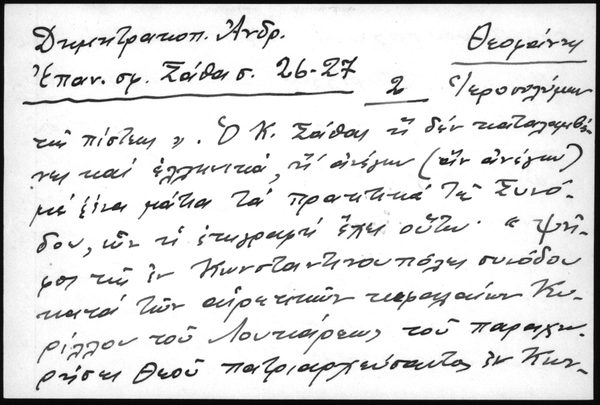 Δημητρακοπ. Ἀνδρ. Θεοφάνης
Ἐπαν. σφ. Σάθα σ. 26-27 2 Ἱεροσολύμων
τῆς πίστεως». Ὁ Κ. Σάθας ἢ δέν καταλαμβά-
νει καί ἑλληνικά, ἢ ἀνέγνω (ἂν ἀνέγνω)
μέ ξένα μάτια τά πρακτικά τῆς Συνό-
δου, ὧν ἡ ἐπιγραφή ἔχει οὕτω· «ψῆ-
φος τῆς ἐν Κωνσταντινουπόλει συνόδου
κατά τῶν αἱρετικῶν κεφαλαίων Κυ-
ρίλλου τοῦ Λουκάρεως τοῦ παραχω-
ρήσει Θεοῦ πατριαρχεύσαντος ἐν Κων-